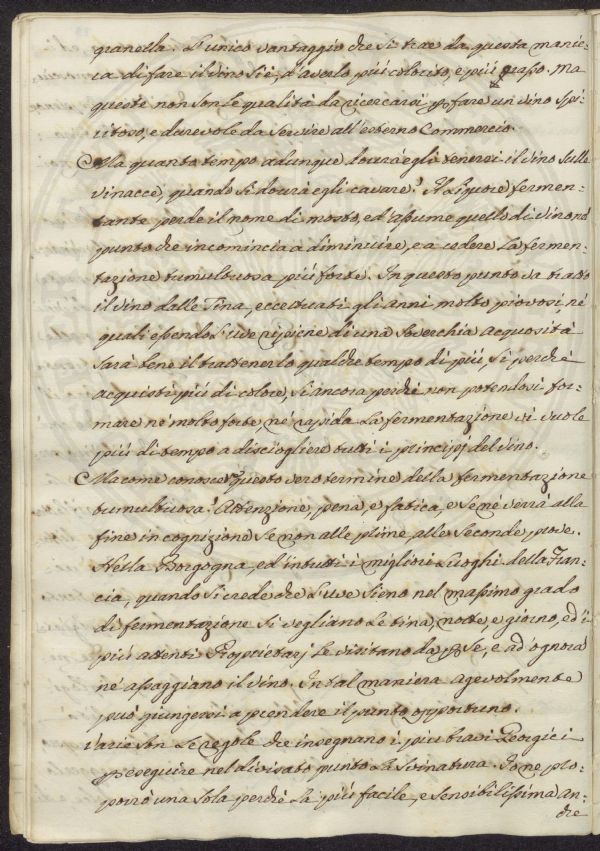 granella. L'unico vantaggio che si trae da questa manie-
ra di fare il vino si è, d'averlo più colorito, e più grasso. Ma
queste non son le qualità da ricercarsi p fare un vino spi-
ritoso, e durevole da servire all'esterno Commercio.
Ma quanto tempo adunque dovrà egli tenersi il vino sulle
vinacce, quando si dovrà egli cavare? Il Liquore fermen-
tante perde il nome di mosto, ed assume quello di vino nel
punto che incomincia a diminuire, e a cedere la fermen-
tazione tumultuosa più forte. In questo punto va tratto
il vino dalle Tina, eccettuati gli anni molto piovosi, ne'
quali essendo l'uve ripiene di una soverchia acquosità
sarà bene il trattenerlo qualche tempo di più, sì perchè
acquisti più di colore, sì ancora perchè non potendosi for-
mare nè molto forte nè rapida la fermentazione vi vuole
più di tempo a disciogliere tutti i principj del vino.
Ma come conoscer questo vero termine della fermentazione
tumultuosa? Attenzione, pena, e fatica, e se ne verrà alla
fine in cognizione se non alle prime, alle seconde prove.
Nella Borgogna, ed in tutti i migliori Luoghi della Fran-
cia, quando si crede che l'uve sieno nel massimo grado
di fermentazione si vegliano le tina, notte, e giorno, ed i
più attenti Proprietarj le visitano da p se, e ad ognora
ne assaggiano il vino. In tal maniera agevolmente
può giungersi a prendere il punto opportuno.
Varie son le regole che insegnano i più bravi Georgici
p eseguire nel divisato punto la svinatura. Io ne pro-
porrò una sola perchè la più facile, e sensibilissima an-
che